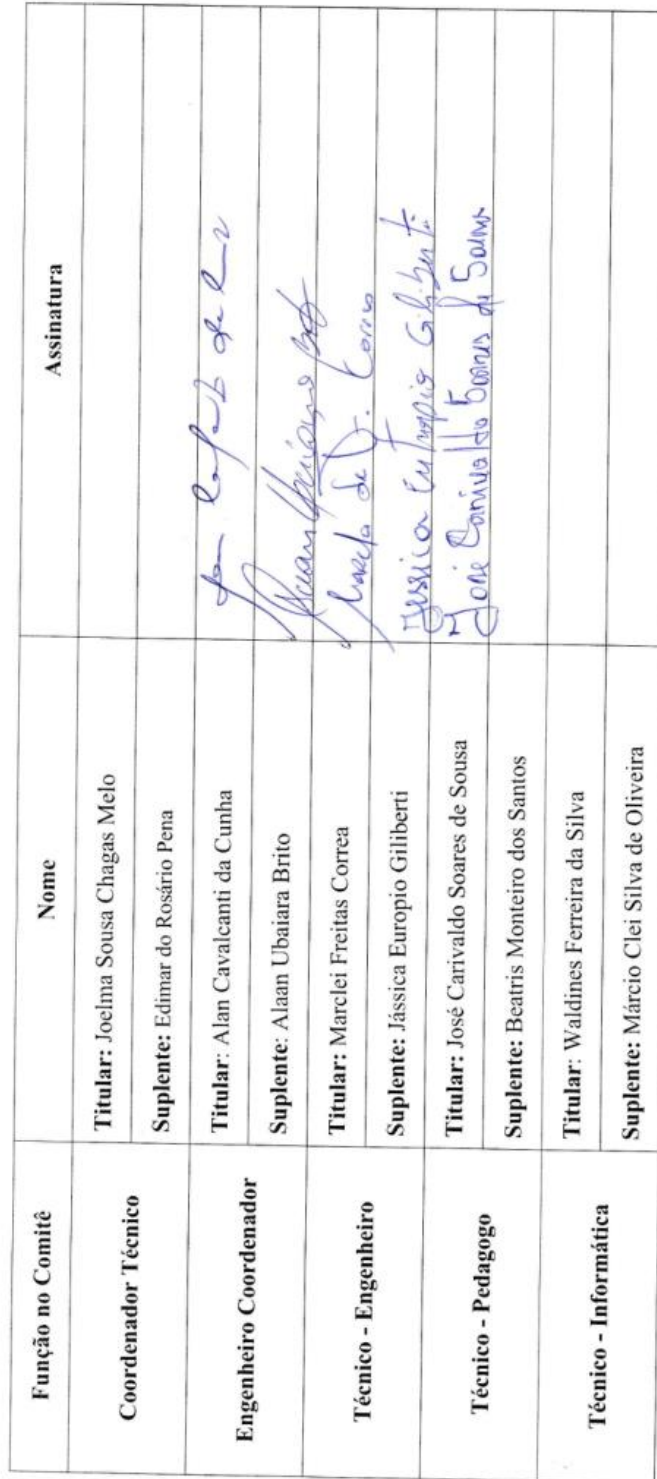 Função no Comitê Nome Assinatura
Coordenador Técnico
Titular: Joelma Sousa Chagas Melo
Suplente: Edimar do Rosário Pena
Engenheiro Coordenador
Titular: Alan Cavalcanti da Cunha
Suplente: Alaan Ubaiara Brito
Técnico - Engenheiro
Titular: Marclei Freitas Correa
Suplente: Jássica Europio Giliberti
Jessica Giliberti
Técnico - Pedagogo
Titular: José Carivaldo Soares de Sousa
José Carivaldo Soares de Sousa
Suplente: Beatris Monteiro dos Santos
Técnico - Informática
Titular: Waldines Ferreira da Silva
Suplente: Márcio Clei Silva de Oliveira